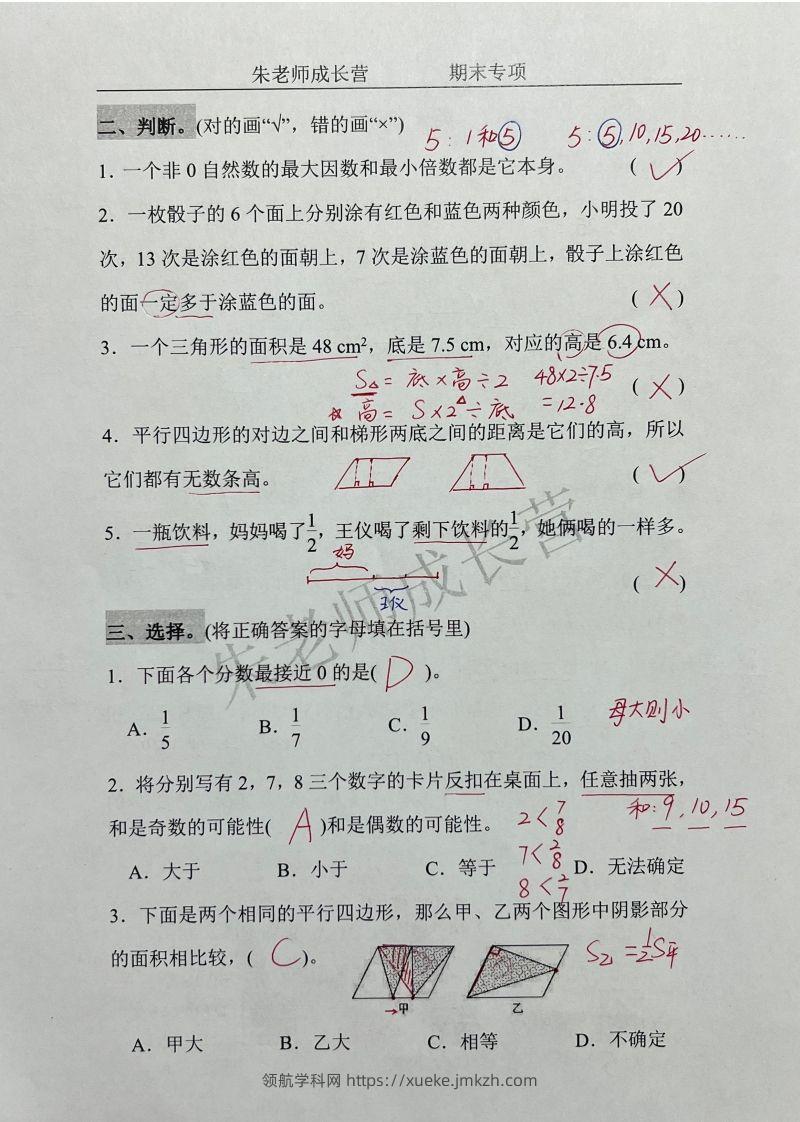 朱老师成长营 期末专项
二、判断。(对的画“√”，错的画“×”)
5：1和5 5：5,10,15,20……
1．一个非0自然数的最大因数和最小倍数都是它本身。 (√)
2．一枚骰子的6个面上分别涂有红色和蓝色两种颜色，小明投了20
次，13次是涂红色的面朝上，7次是涂蓝色的面朝上，骰子上涂红色
的面一定多于涂蓝色的面。 (×)
3．一个三角形的面积是48 cm²，底是7.5 cm，对应的高是6.4 cm。
S△=底×高÷2 48×2÷7.5 (×)
高△=S×2÷底 =12.8
4．平行四边形的对边之间和梯形两底之间的距离是它们的高，所以
它们都有无数条高。 (√)
5．一瓶饮料，妈妈喝了1/2，王仪喝了剩下饮料的1/2，她俩喝的一样多。
妈
(×)
王仪
三、选择。(将正确答案的字母填在括号里)
1．下面各个分数最接近0的是(D)。
A．1/5 B．1/7 C．1/9 D．1/20 母大则小
2．将分别写有2，7，8三个数字的卡片反扣在桌面上，任意抽两张，
和是奇数的可能性(A)和是偶数的可能性。 2<7 8 和：9,10,15
A．大于 B．小于 C．等于 7<2 8 D．无法确定
8<2 7
3．下面是两个相同的平行四边形，那么甲、乙两个图形中阴影部分
的面积相比较，(C)。 S乙=1/2S平
→甲 乙
A．甲大 B．乙大 C．相等 D．不确定
朱老师成长营
领航学科网 https://xueke.jmkzh.com